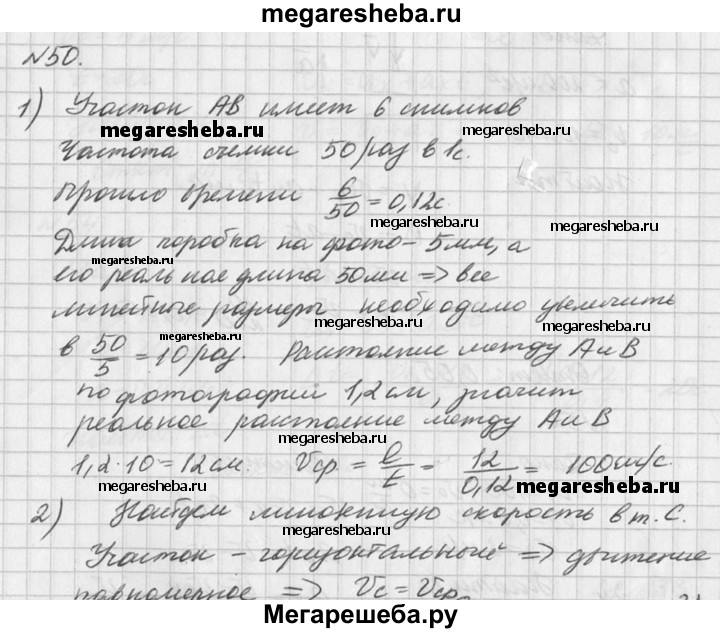 megaresheba.ru
№50.
1) Участок АВ имеет 6 снимков
megaresheba.ru megaresheba.ru
Частота съемки 50 раз в 1с.
Прошло времени 6/50 = 0,12с
megaresheba.ru megaresheba.ru
Длина коробка на фото - 5мм, а
megaresheba.ru
его реальная длина 50мм => все
линейные размеры необходимо увеличить
megaresheba.ru megaresheba.ru
в 50/5 = 10 раз. Расстояние между А и В
megaresheba.ru
по фотографии 1,2 см, значит
реальное расстояние между А и В
megaresheba.ru
1,2·10=12см. Vср. = l/t = 12/0,12 = 100см/с.
megaresheba.ru megaresheba.ru
2) Найдем мгновенную скорость в т. С.
megaresheba.ru
Участок - горизонтальный => движение
равномерное => Vc = Vср
Мегарешеба.ру